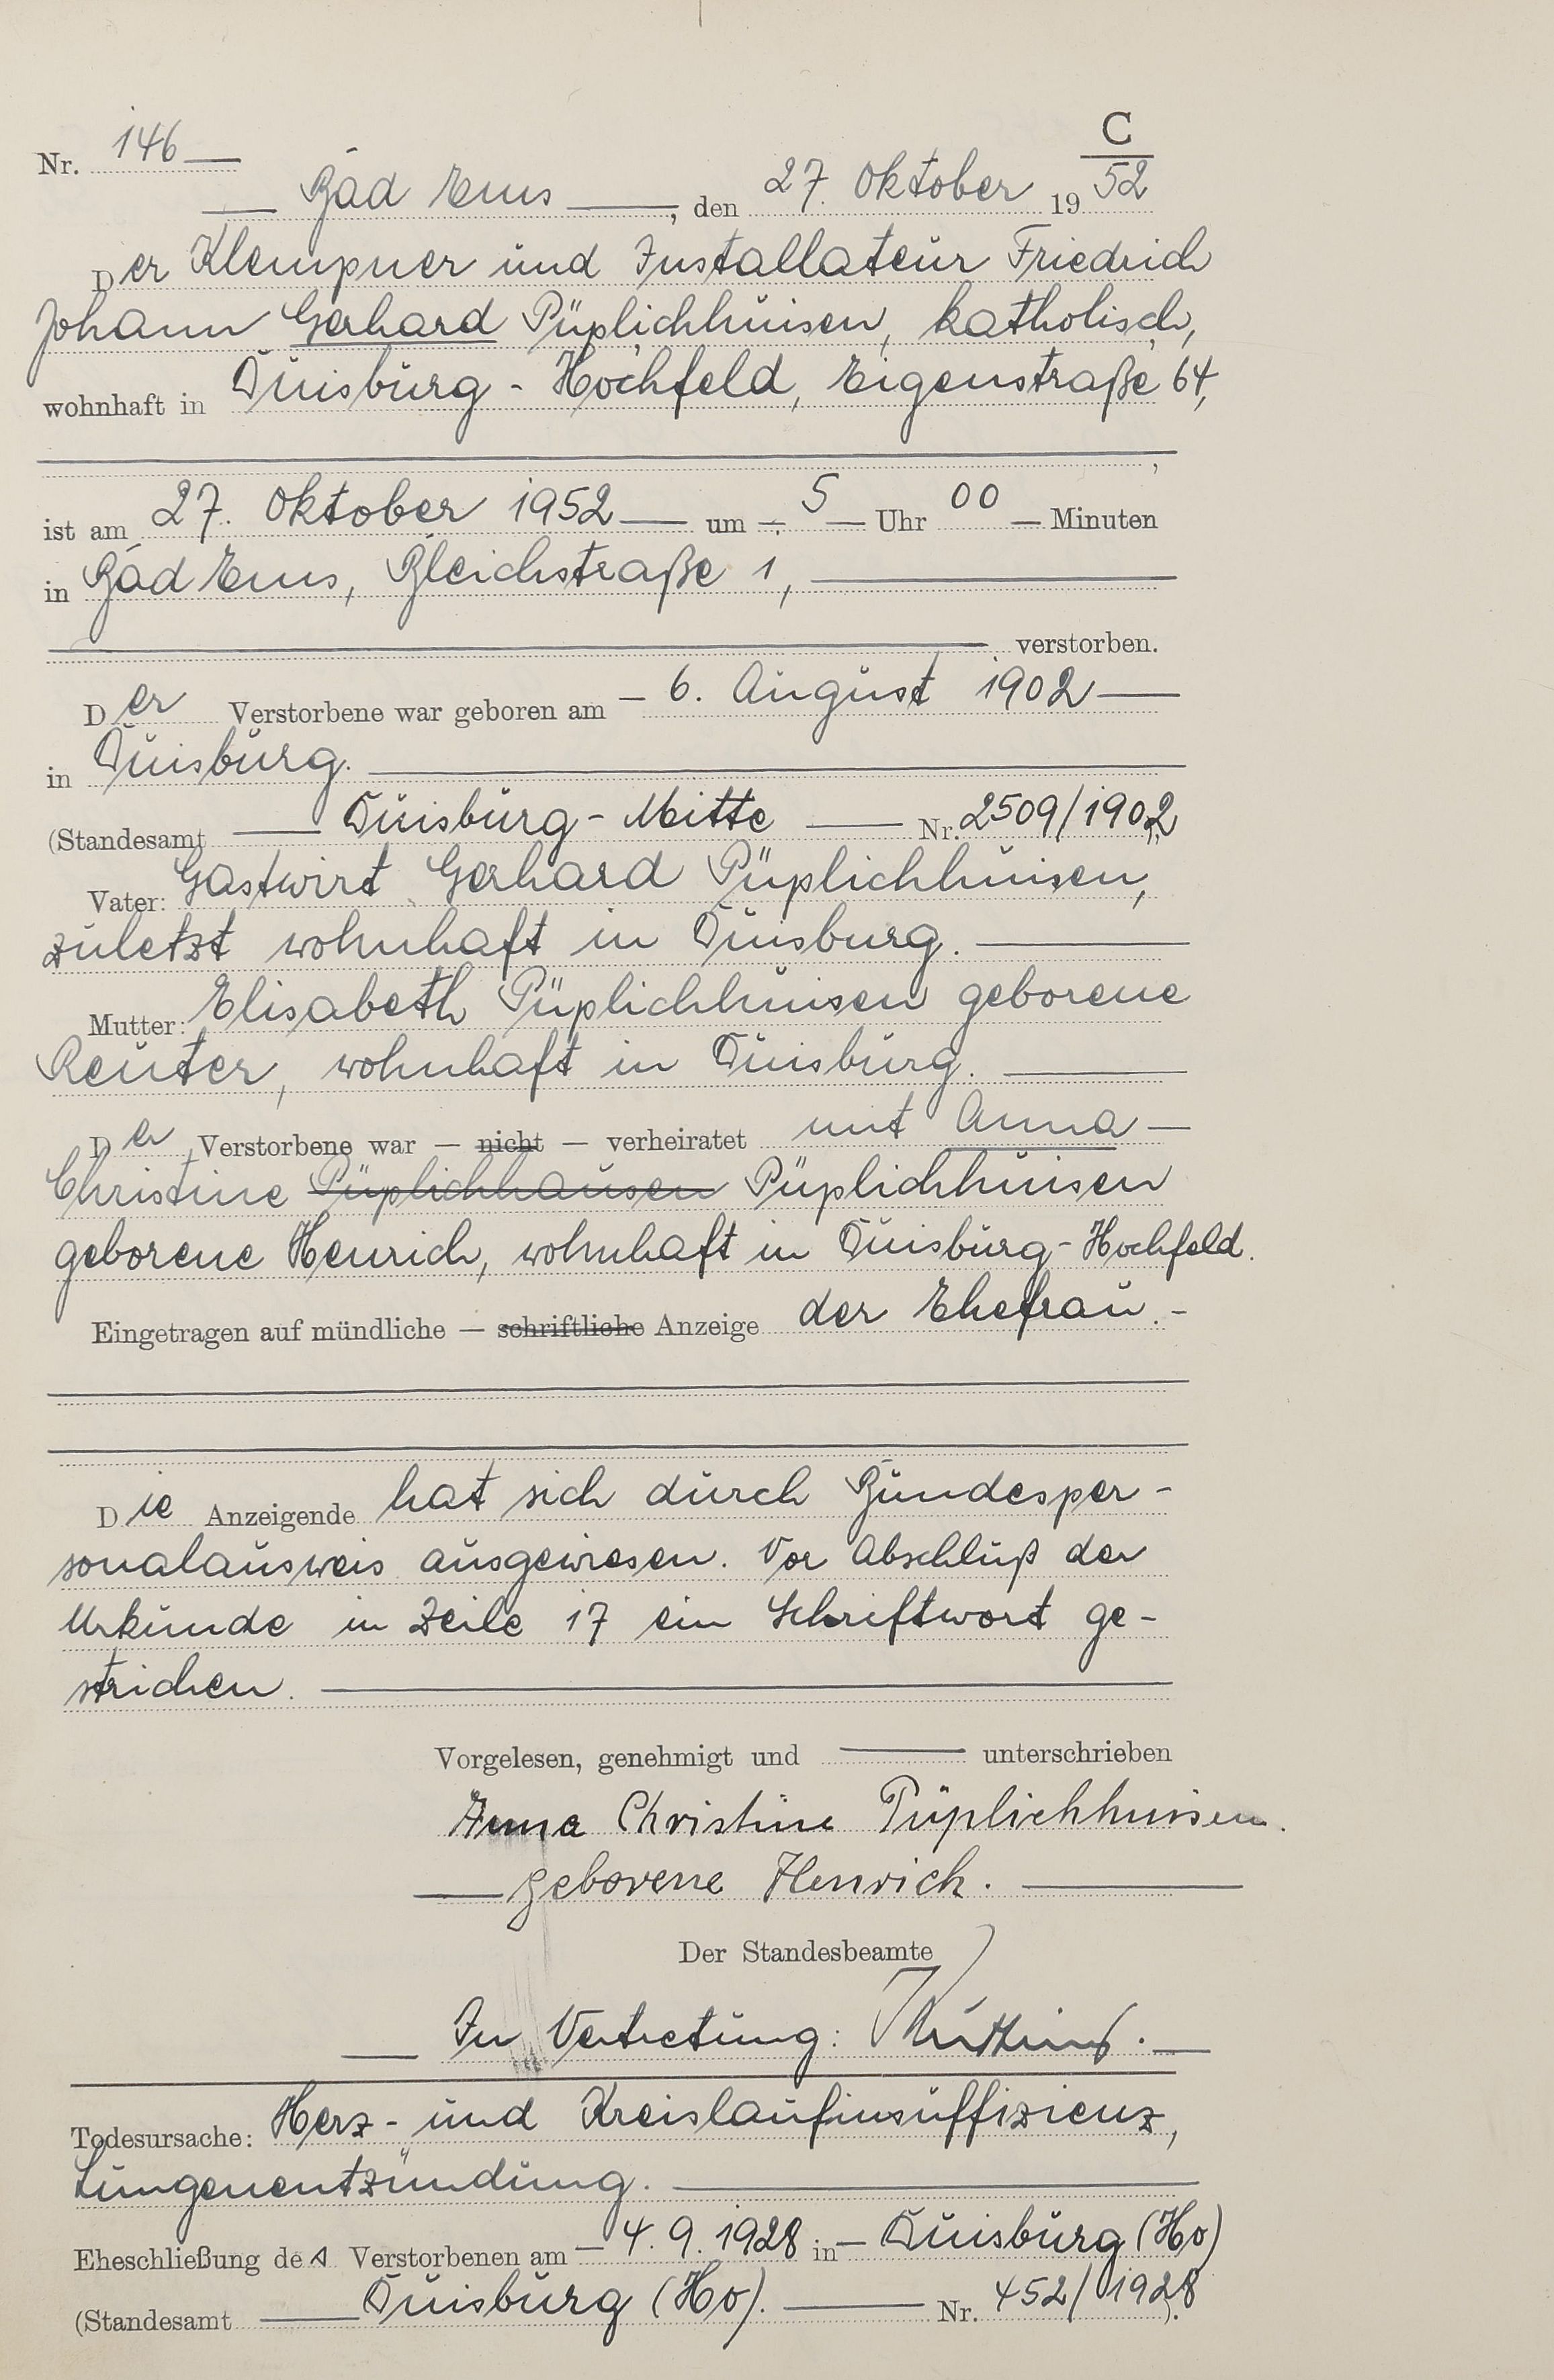 C
Nr. 146
Bad Ems, den 27. Oktober 1952
Der Klempner und Installateur Friedrich
Johann Gerhard Püplichhuisen, katholisch,
wohnhaft in Duisburg - Hochfeld, Eigenstraße 64,
,
ist am 27. Oktober 1952 um 5 Uhr 00 Minuten
in Bad Ems, Bleichstraße 1,
verstorben.
Der Verstorbene war geboren am 6. August 1902
in Duisburg.
(Standesamt Duisburg-Mitte Nr. 2509/1902)
Vater: Gastwirt Gerhard Püplichhuisen,
zuletzt wohnhaft in Duisburg.
Mutter: Elisabeth Püplichhuisen geborene
Reuter, wohnhaft in Duisburg.
Der Verstorbene war — nicht — verheiratet mit Anna
Christine Püplichhausen Püplichhuisen
geborene Henrich, wohnhaft in Duisburg-Hochfeld.
Eingetragen auf mündliche — schriftliche Anzeige der Ehefrau.
Die Anzeigende hat sich durch Bundesper-
sonalausweis ausgewiesen. Vor Abschluß der
Urkunde in Zeile 17 ein Schriftwort ge-
strichen.
Vorgelesen, genehmigt und unterschrieben
Anna Christine Püplichhuisen.
geborene Henrich.
Der Standesbeamte
In Vertretung:
Todesursache: Herz- und Kreislaufinsuffizienz,
Lungenentzündung.
Eheschließung des Verstorbenen am 4.9.1928 in Duisburg (Ho)
(Standesamt Duisburg (Ho). Nr. 452/1928).